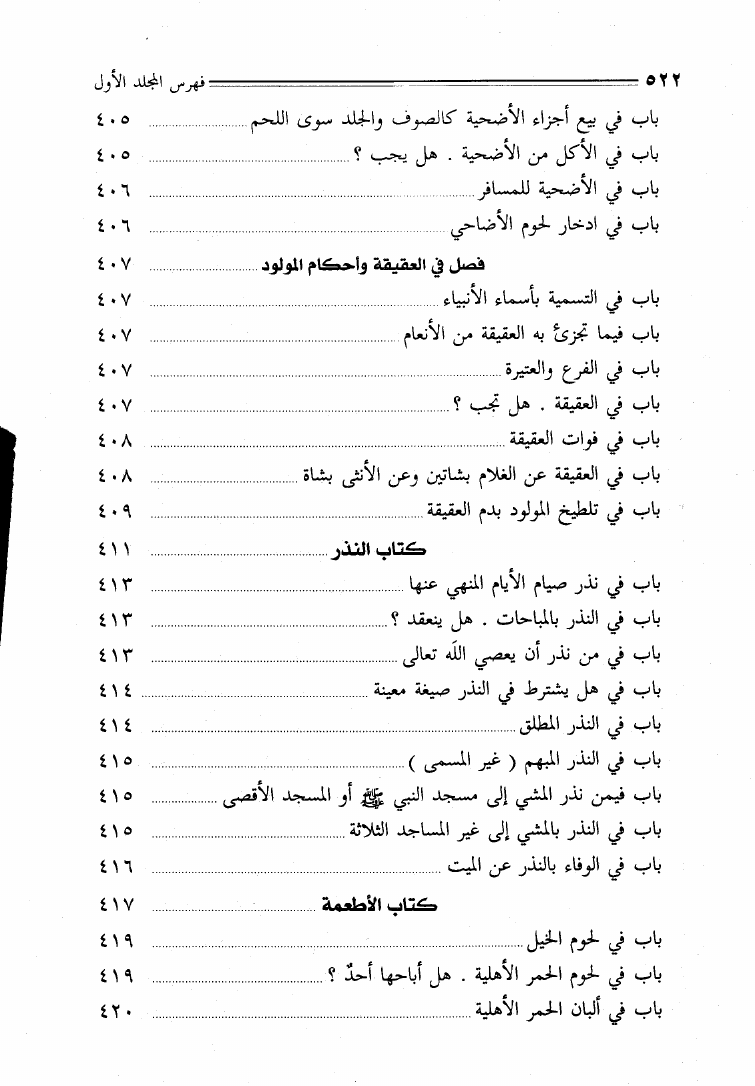 ٥٢٢ فهرس المجلد الأول
باب في بيع أجزاء الأضحية كالصوف والجلد سوى اللحم ٤٠٥
باب في الأكل من الأضحية . هل يجب ؟ ٤٠٥
باب في الأضحية للمسافر ٤٠٦
باب في ادخار لحوم الأضاحي ٤٠٦
فصل في العقيقة وأحكام المولود ٤٠٧
باب في التسمية بأسماء الأنبياء ٤٠٧
باب فيما تجزئ به العقيقة من الأنعام ٤٠٧
باب في الفرع والعتيرة ٤٠٧
باب في العقيقة . هل تجب ؟ ٤٠٧
باب في فوات العقيقة ٤٠٨
باب في العقيقة عن الغلام بشاتين وعن الأنثى بشاة ٤٠٨
باب في تلطيخ المولود بدم العقيقة ٤٠٩
كتاب النذر ٤١١
باب في نذر صيام الأيام المنهي عنها ٤١٣
باب في النذر بالمباحات . هل ينعقد ؟ ٤١٣
باب في من نذر أن يعصي اللَّه تعالى ٤١٣
باب في هل يشترط في النذر صيغة معينة ٤١٤
باب في النذر المطلق ٤١٤
باب في النذر المبهم ( غير المسمى ) ٤١٥
باب فيمن نذر المشي إلى مسجد النبي ﷺ أو المسجد الأقصى ٤١٥
باب في النذر بالمشي إلى غير المساجد الثلاثة ٤١٥
باب في الوفاء بالنذر عن الميت ٤١٦
كتاب الأطعمة ٤١٧
باب في لحوم الخيل ٤١٩
باب في لحوم الحمر الأهلية . هل أباحها أحدٌ ؟ ٤١٩
باب في ألبان الحمر الأهلية ٤٢٠